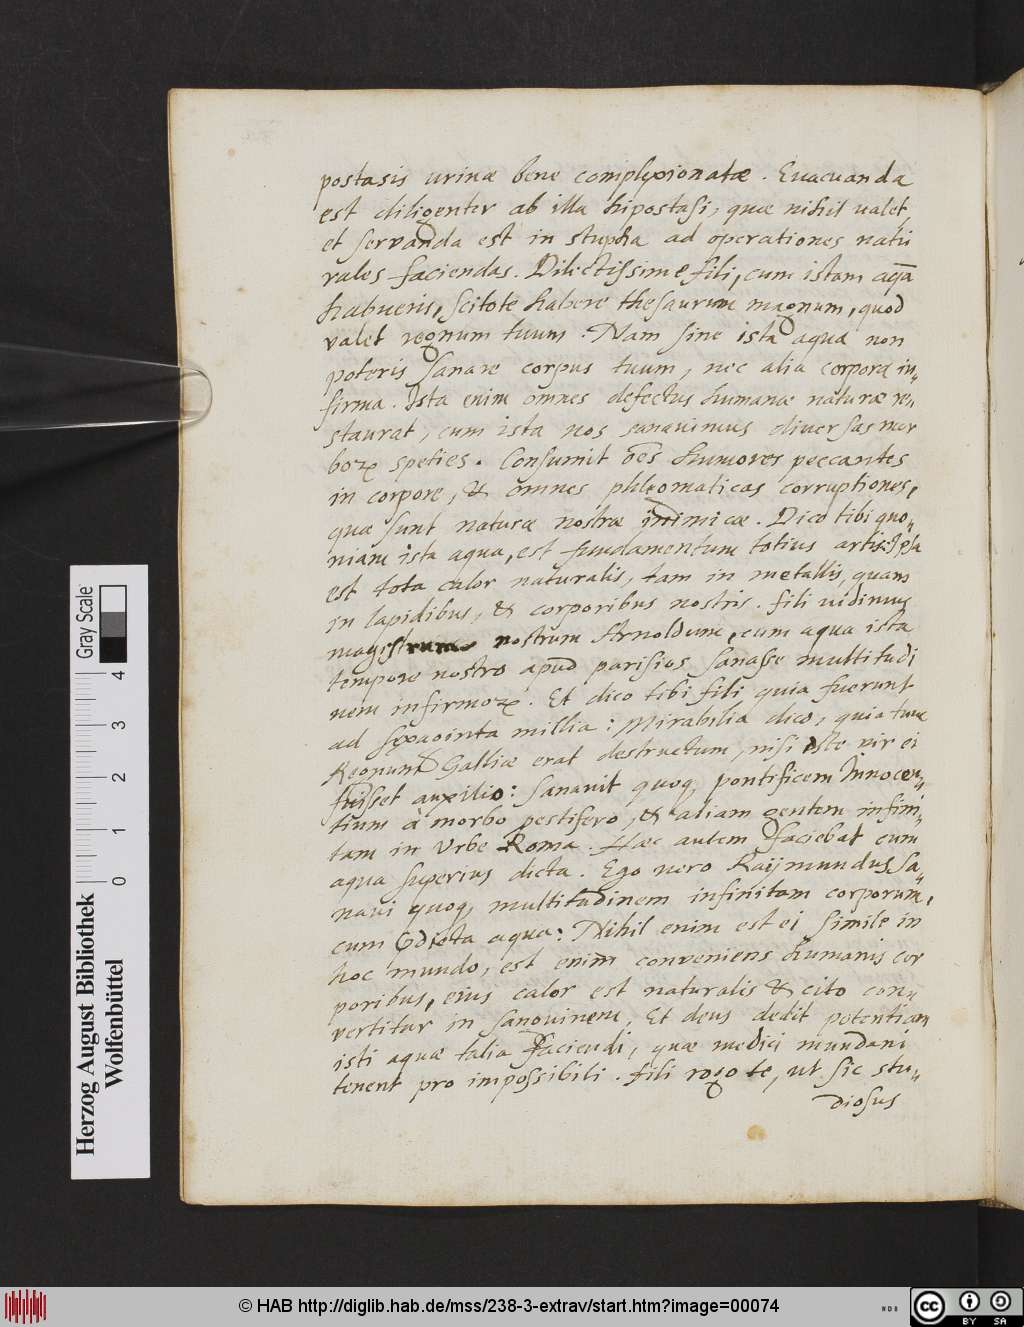 postasis urinæ bene complexionatæ. Evacuanda
est diligenter ab illa hipostasi, quæ nihil ualet,
et servanda est in stupha ad operationes natu
rales faciendas. Dilectissime fili, cum istam aquā
habueris, scitote habere thesaurum magnum, quod
valet regnum tuum. Nam sine ista aqua non
poteris sanare corpus tuum, nec alia corpora in„
firma. Ista enim omnes defectus humanæ naturæ re„
staurat, cum ista nos sanavimus diversas mor
boꝝ speties. Consumit oēs humores peccantes
in corpore, & omnes phlegmaticas corruptiones,
quæ sunt naturæ nostræ inimicæ. Dico tibi quo„
niam ista aqua, est fundamentum totius artis: Ipsa
est tota calor naturalis, tam in metallis, quam
in lapidibus, & corporibus nostris. Fili uidimus
magistrum nostrum Arnoldum, cum aqua ista
tempore nostro apud parisios sanasse multitudi
nem infirmoꝝ. Et dico tibi fili quia fuerunt
ad sexaginta millia: Mirabilia dico, quia tunc
Regnum Galliæ erat destructum, nisi iste vir ei
fuisset auxilio: Sanavit quoq, pontificem Innocen„
tium à morbo pestifero, & aliam gentem infini„
tam in Urbe Roma. Hæc autem faciebat cum
aqua superius dicta. Ego uero Raijmundus sa„
navi quoq, multitudinem infinitam corporum,
cum dicta aqua: Nihil enim est ei simile in
hoc mundo, est enim conveniens humanis cor
poribus, eius calor est naturalis & cito con„
vertitur in sanguinem, Et deus dedit potentiam
isti aquæ talia faciendi, quæ medici mundani
tenent pro impossibili. Fili rogo te, ut sic stu„
diosus
Gray Scale
4
3
2
1
0
Herzog August Bibliothek
Wolfenbüttel
© HAB http://diglib.hab.de/mss/238-3-extrav/start.htm?image=00074
NDB
CC
BY SA